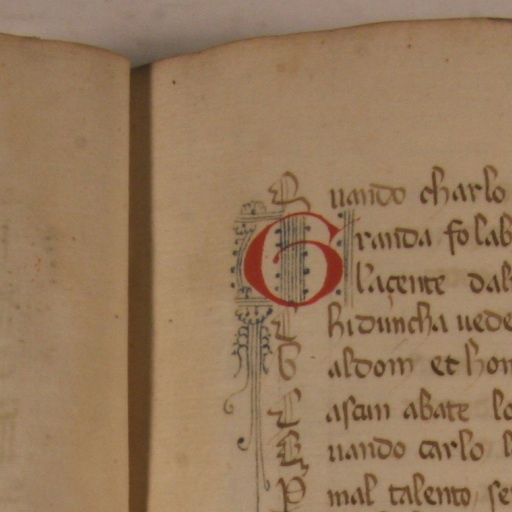 Quando charlo
Granda folab
E laçente dal
Chiduncha uede
Baldom et hom
Cascun abate lo
Quando carlo l
P mal talento se